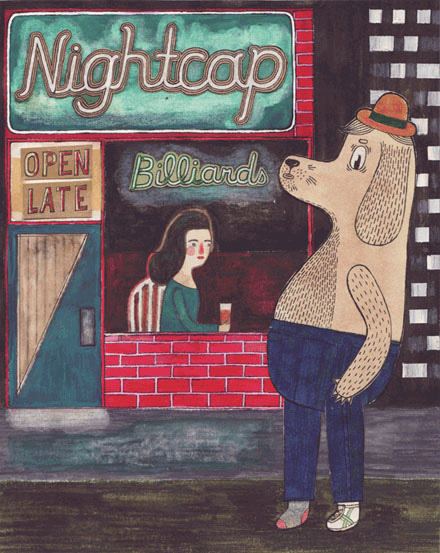 Nightcap
OPEN
LATE
Billiards